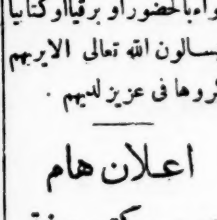 بالحضور او برقيا او كتابيا
يسألون الله تعالى الا يريهم
مكروها فى عزيز لديهم .
اعلان هام